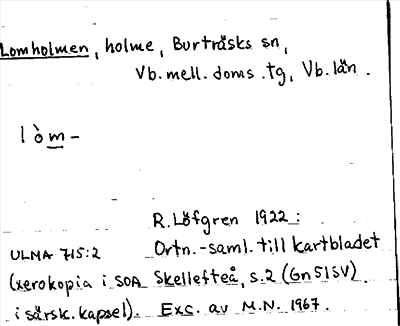 Lomholmen, holme, Burträsks sn,
Vb. mell. doms. tg, Vb. län.
lòm-
R. Löfgren 1922:
ULMA 715:2 Ortn.-saml. till kartbladet
(xerokopia i SOA Skellefteå, s. 2 (Gn 51SV).
i särsk. kapsel). Exc. av M.N. 1967.